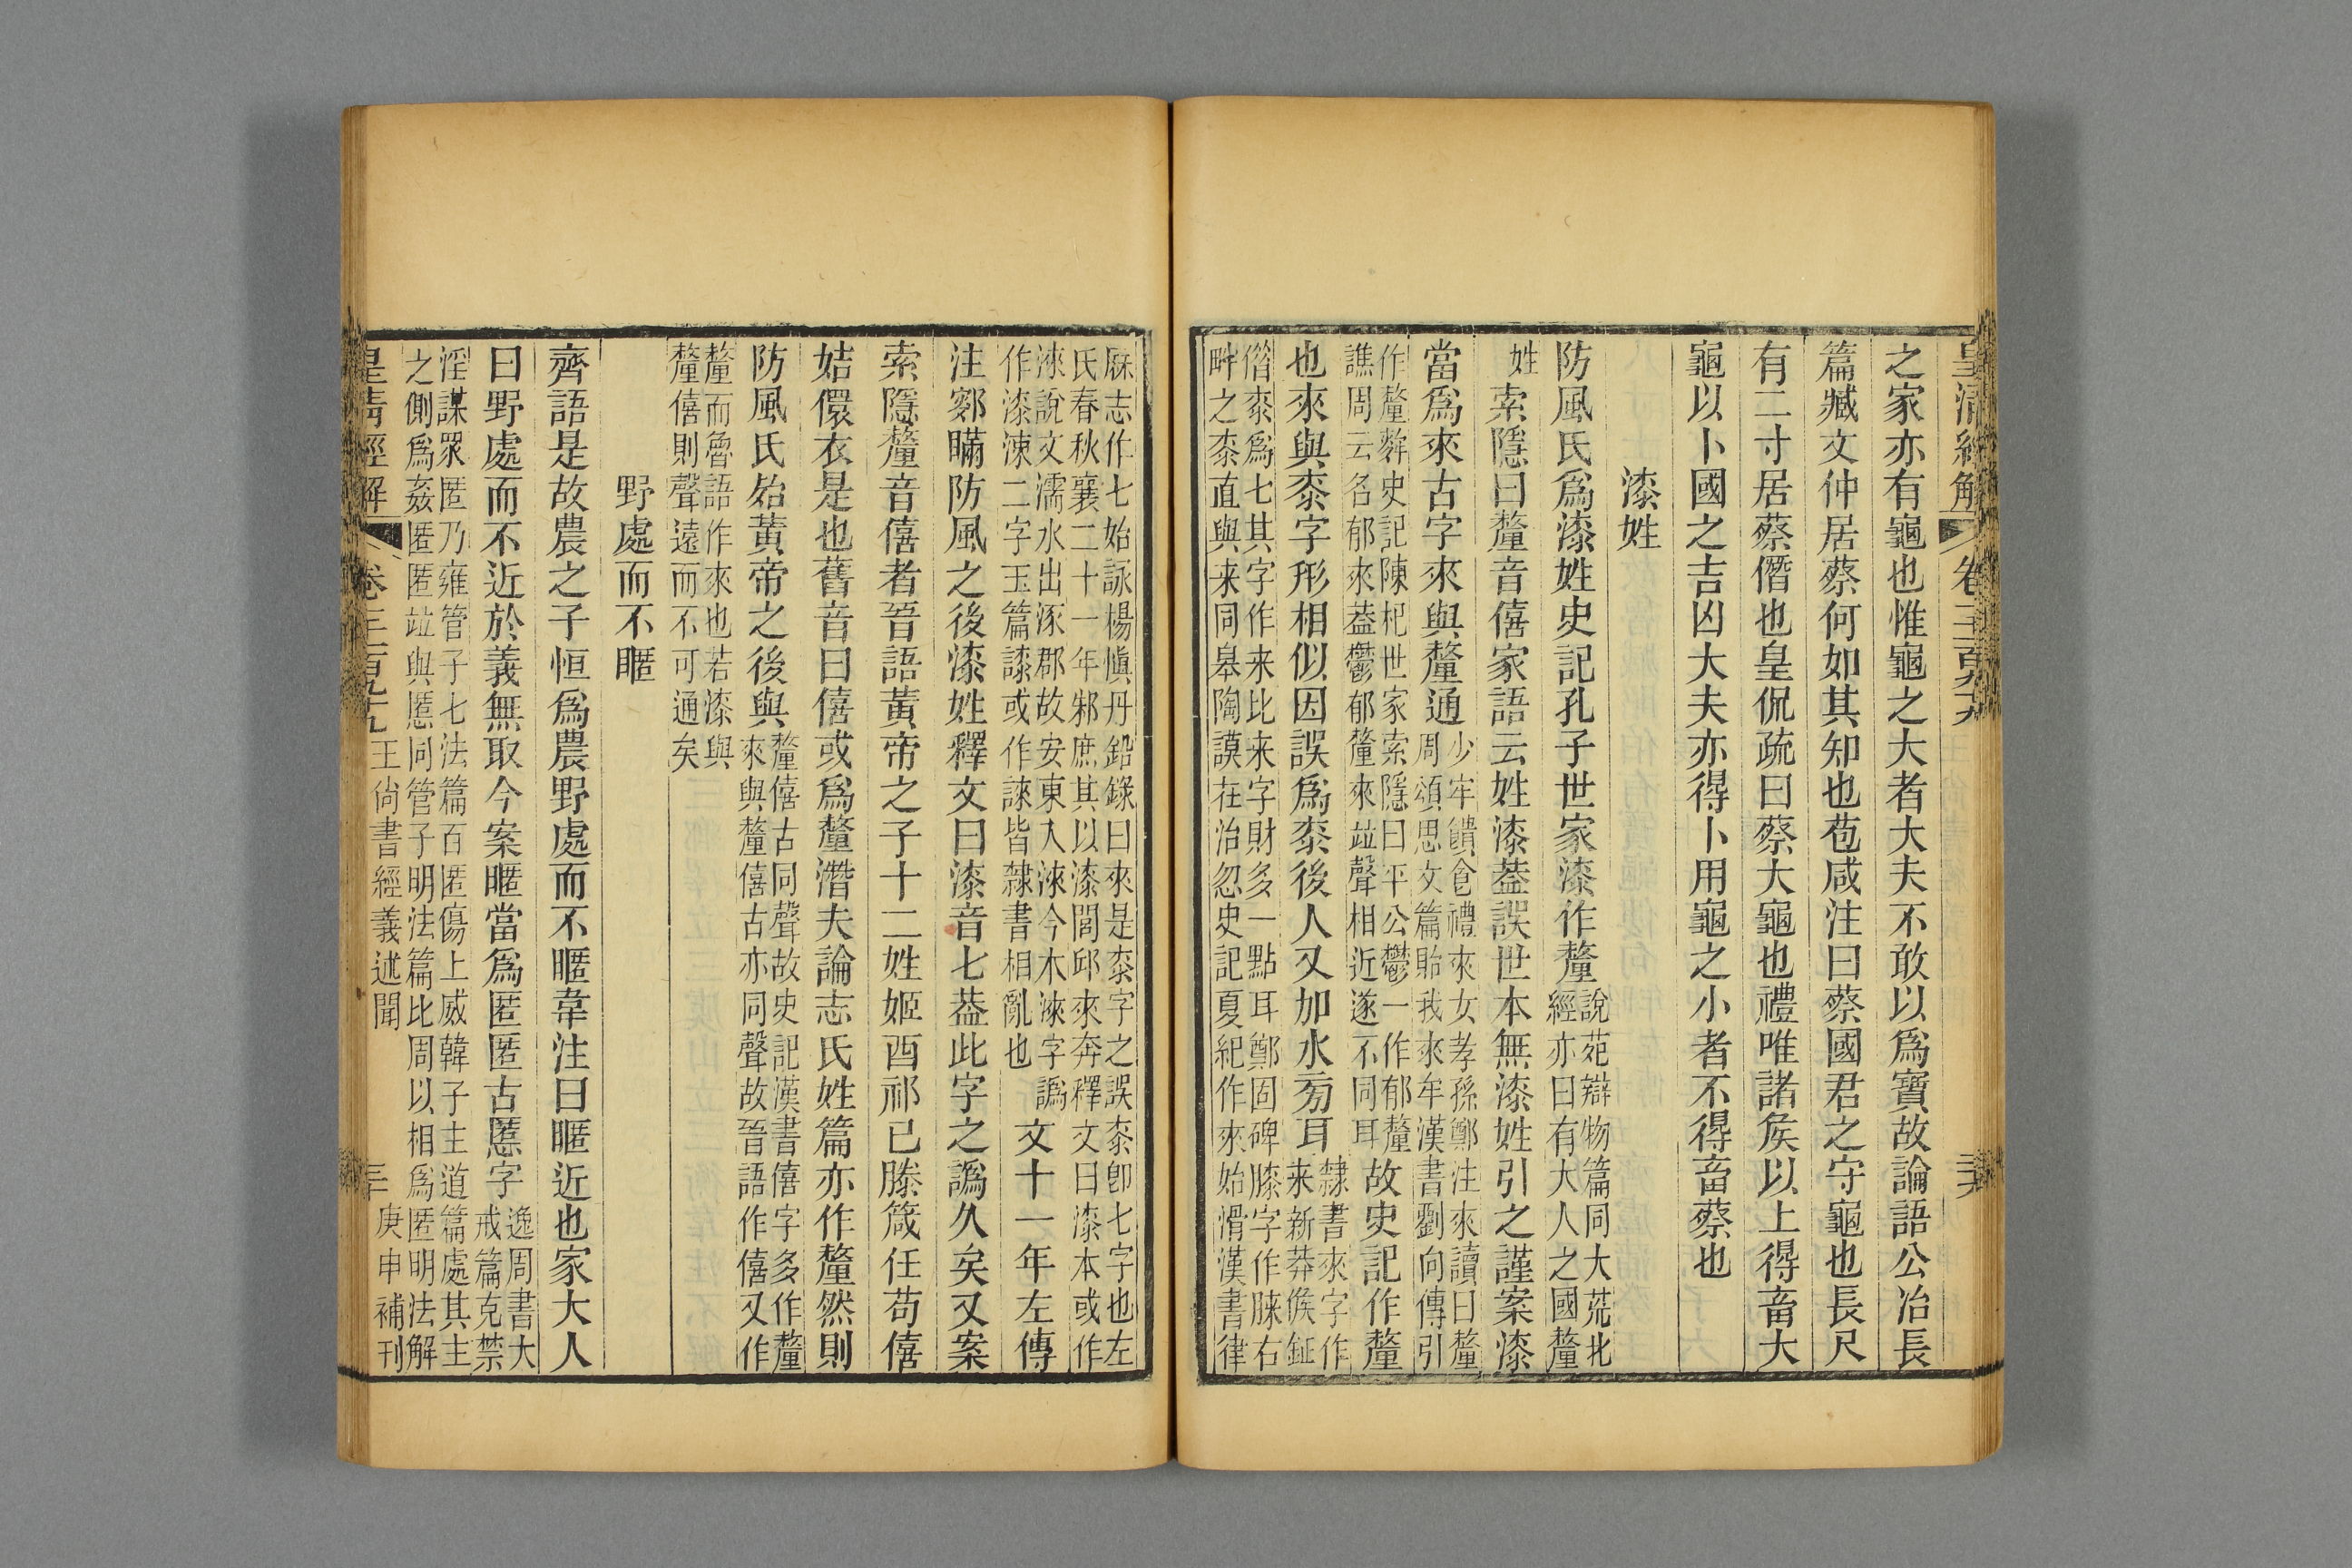 皇清經解 卷二百九十九 三九
之家亦有龜也惟龜之大者大夫不敢以爲寶故論語公冶長
篇臧文仲居蔡何如其知也苞咸注曰蔡國君之守龜也長尺
有二寸居蔡僭也皇侃疏曰蔡大龜也禮唯諸矦以上得畜大
龜以卜國之吉凶大夫亦得卜用龜之小者不得畜蔡也
漆姓
防風氏爲漆姓史記孔子世家漆作釐
說苑辯物篇同大荒北
經亦曰有大人之國釐
姓
索隱曰釐音僖家語云姓漆葢誤世本無漆姓引之謹案漆
當爲來古字來與釐通
少牢饋食禮來女孝孫鄭注來讀曰釐
周頌思文篇貽我來牟漢書劉向傳引
作釐麰史記陳杞世家索隱曰平公鬱一作郁釐
譙周云名郁來葢鬱郁釐來竝聲相近遂不同耳
故史記作釐
也來與桼字形相似因誤爲桼後人又加水旁耳
隸書來字作
来新莽矦鉦
偺桼爲七其字作来比来字財多一點耳鄭固碑膝字作脨右
畔之桼直與来同皋陶謨在治忽史記夏紀作來始滑漢書律
厤志作七始詠楊愼丹鉛錄曰來是桼字之誤桼卽七字也左
氏春秋襄二十一年邾庶其以漆閭邱來奔釋文曰漆本或作
涞說文濡水出涿郡故安東入涞今木涞字譌
作漆涑二字玉篇䜍或作誺皆隸書相亂也
文十一年左傳
注鄋瞞防風之後漆姓釋文曰漆音七葢此字之譌久矣又案
索隱釐音僖者晉語黃帝之子十二姓姬酉祁已滕箴任苟僖
姞儇衣是也舊音曰僖或爲釐潛夫論志氏姓篇亦作釐然則
防風氏殆黃帝之後與
釐僖古同聲故史記漢書僖字多作釐
來與釐僖古亦同聲故晉語作僖又作
釐而魯語作來也若漆與
釐僖則聲遠而不可通矣
野處而不暱
齊語是故農之子恒爲農野處而不暱韋注曰暱近也家大人
曰野處而不近於義無取今案暱當爲匿匿古慝字
逸周書大
戒篇克禁
淫謀眾匿乃雍管子七法篇百匿傷上威韓子主道篇處其主
之側爲姦匿匿竝與慝同管子明法篇比周以相爲匿明法解
皇清經解 卷二百九十九 王尙書經義述聞 三十 庚申補刊